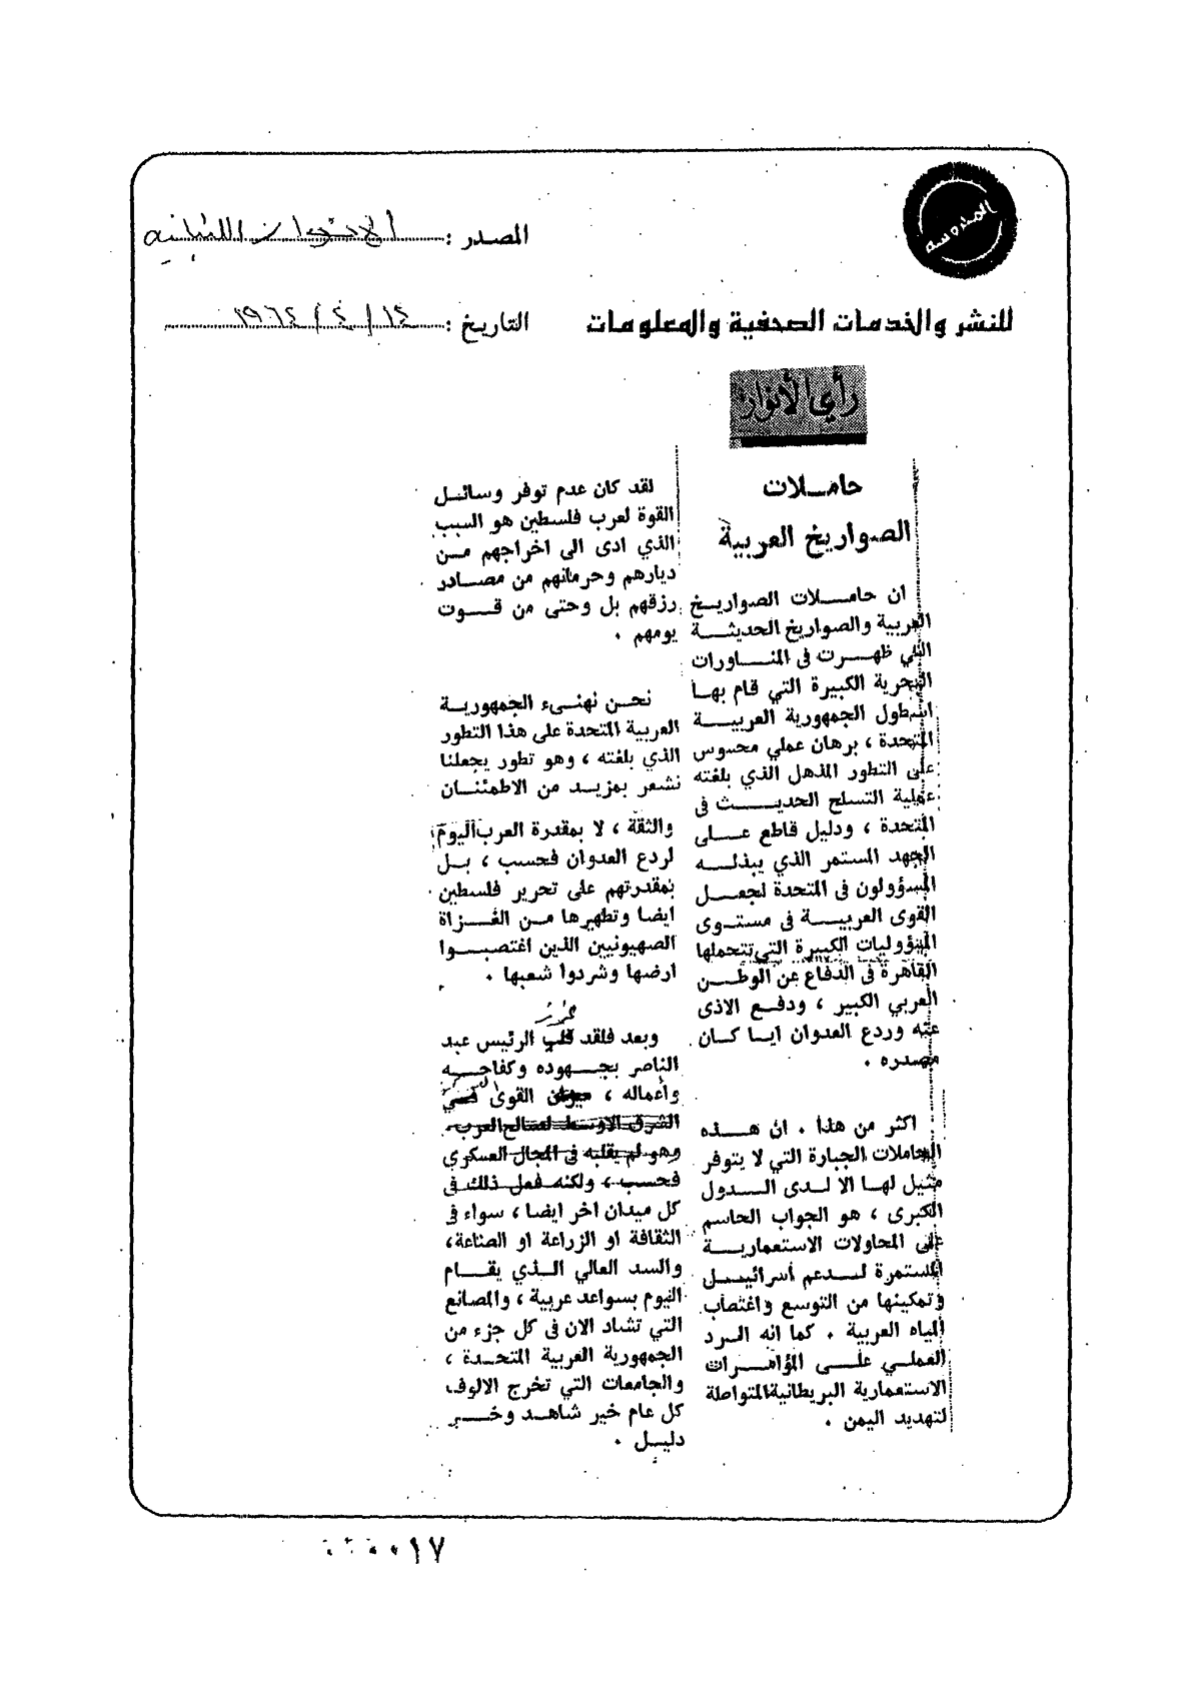 المحروسة
المصدر : الانوار اللبنانيه
للنشر والخدمات الصحفية والمعلومات
التاريخ : ١٤ / ٤ / ١٩٦٤
رأي الأنوار
حامــلات
الصواريخ العربية
ان حامــلات الصواريــخ
العربية والصواريخ الحديثــة
التي ظهــرت في المنــاورات
البحرية الكبيرة التي قام بهــا
اسطول الجمهورية العربيــة
المتحدة ، برهان عملي محسوس
على التطور المذهل الذي بلغته
عملية التسلح الحديــث في
المتحدة ، ودليل قاطع علــى
الجهد المستمر الذي يبذلــه
المسؤولون في المتحدة لجعــل
القوى العربيــة في مستــوى
المسؤوليات الكبيرة التي تتحملها
القاهرة في الدفاع عن الوطــن
العربي الكبير ، ودفــع الاذى
عنه وردع العدوان ايا كــان
مصدره .
اكثر من هذا . ان هــذه
الحاملات الجبارة التي لا يتوفر
مثيل لهــا الا لــدى الــدول
الكبرى ، هو الجواب الحاسم
على المحاولات الاستعماريــة
المستمرة لــدعم اسرائيــل
وتمكينها من التوسع واغتصاب
المياه العربية . كما انه الــرد
العملــي علــى المؤامــرات
الاستعمارية البريطانية المتواطئة
لتهديد اليمن .
لقد كان عدم توفر وسائــل
القوة لعرب فلسطين هو السبب
الذي ادى الى اخراجهم مــن
ديارهم وحرمانهم من مصــادر
رزقهم بل وحتى من قــوت
يومهم .
نحــن نهنىء الجمهوريــة
العربية المتحدة على هذا التطور
الذي بلغته ، وهو تطور يجعلنا
نشعر بمزيــد من الاطمئنــان
والثقة ، لا بمقدرة العرب اليوم
لردع العدوان فحسب ، بــل
بمقدرتهم على تحرير فلسطين
ايضا وتطهيرها مــن الغــزاة
الصهيونيين الذين اغتصبــوا
ارضها وشردوا شعبها .
وبعد فلقد قلب الرئيس عبد
الناصر بجهــوده وكفاحــه
وأعماله ، ميزان القوى فــي
الشرق الاوسط لصالح العرب .
وهو لم يقلبه في المجال العسكري
فحسب ، ولكنه فعل ذلك في
كل ميدان اخر ايضا ، سواء في
الثقافة او الزراعة او الصناعة ،
والسد العالي الــذي يقــام
اليوم بسواعد عربية ، والمصانع
التي تشاد الان في كل جزء من
الجمهورية العربية المتحــدة ،
والجامعات التي تخرج الالوف
كل عام خير شاهــد وخــير
دليــل .